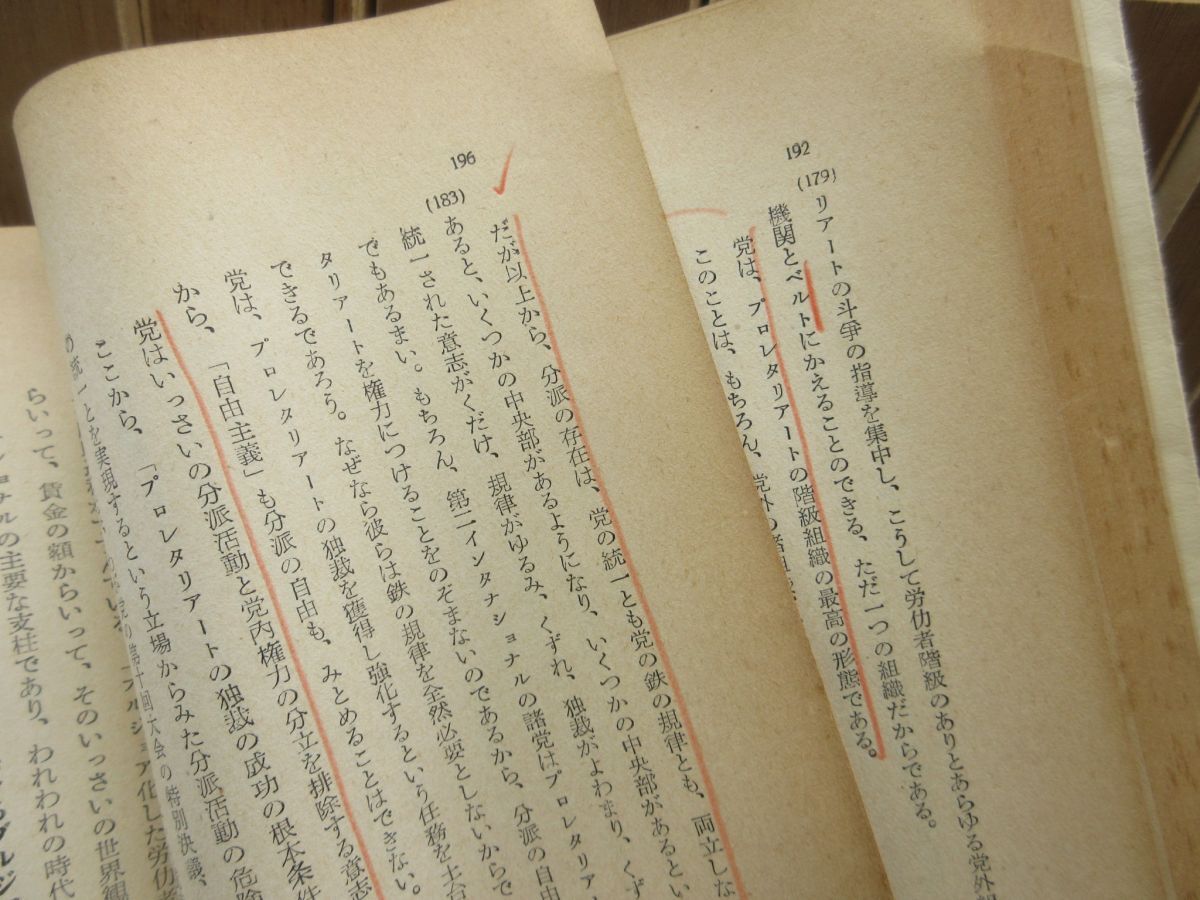 192
(179)
リアートの斗爭の指導を集中し、こうして労仂者階級のありとあらゆる党外
機関とベルトにかえることのできる、ただ一つの組織だからである。
党は、プロレタリアートの階級組織の最高の形態である。
このことは、もちろん、党外の
196
(183)
だが以上から、分派の存在は、党の統一とも党の鉄の規律とも、両立しな
あると、いくつかの中央部があるようになり、いくつかの中央部があるとい
統一された意志がくだけ、規律がゆるみ、くずれ、独裁がよわまり、くず
でもあるまい。もちろん、第二インタナショナルの諸党はプロレタリア
タリアートを権力につけることをのぞまないのであるから、分派の自由
できるであろう。なぜなら彼らは鉄の規律を全然必要としないからで
党は、プロレタリアートの独裁を獲得し強化するという任務を土台
から、「自由主義」も分派の自由も、みとめることはできない。
党はいっさいの分派活動と党内権力の分立を排除する意志
ここから、「プロレタリアートの独裁の成功の根本条件
統一とを実現するという立場からみた分派活動の危険
第十回大会の特別決議、
化した労仂者
らいって、賃金の額からいって、そのいっさいの世界観
ナルの主要な支柱であり、われわれの時代